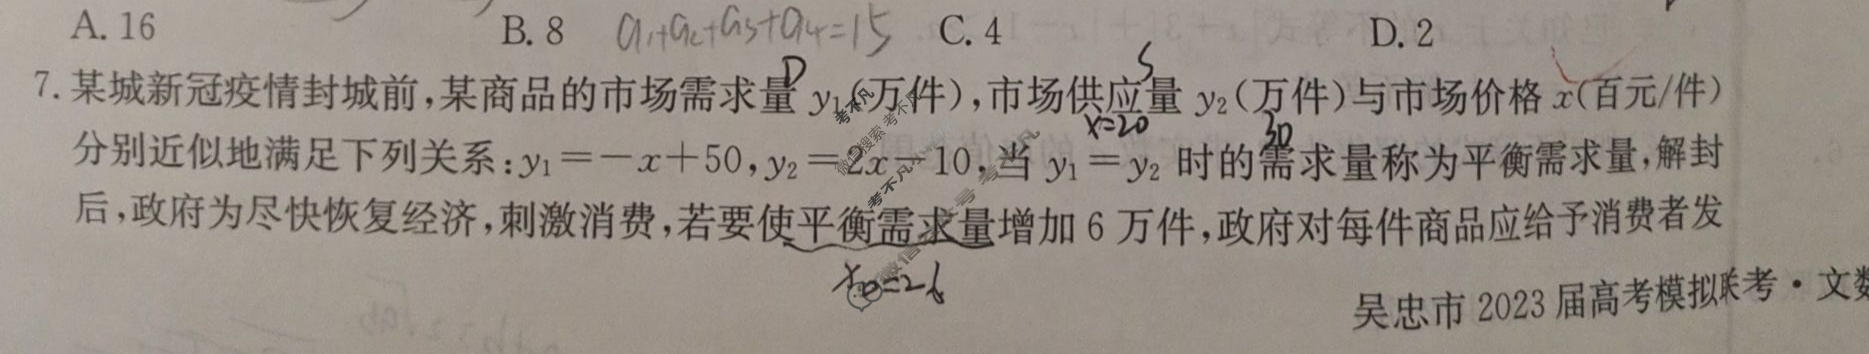 A. 16 B. 8 a₁+a₂+a₃+a₄=15 C. 4 D. 2
D S
7. 某城新冠疫情封城前,某商品的市场需求量 y₁(万件),市场供应量 y₂(万件)与市场价格 x(百元/件)
x=20 30
分别近似地满足下列关系:y₁=-x+50,y₂=2x-10,当 y₁=y₂ 时的需求量称为平衡需求量,解封
后,政府为尽快恢复经济,刺激消费,若要使平衡需求量增加 6 万件,政府对每件商品应给予消费者发
=26
吴忠市 2023 届高考模拟联考·文数